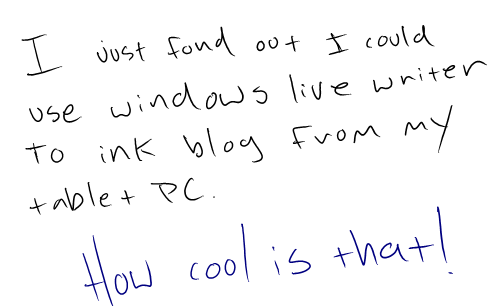 I just fond out I could
use windows live writer
to ink blog from my
tablet PC.
How cool is that!